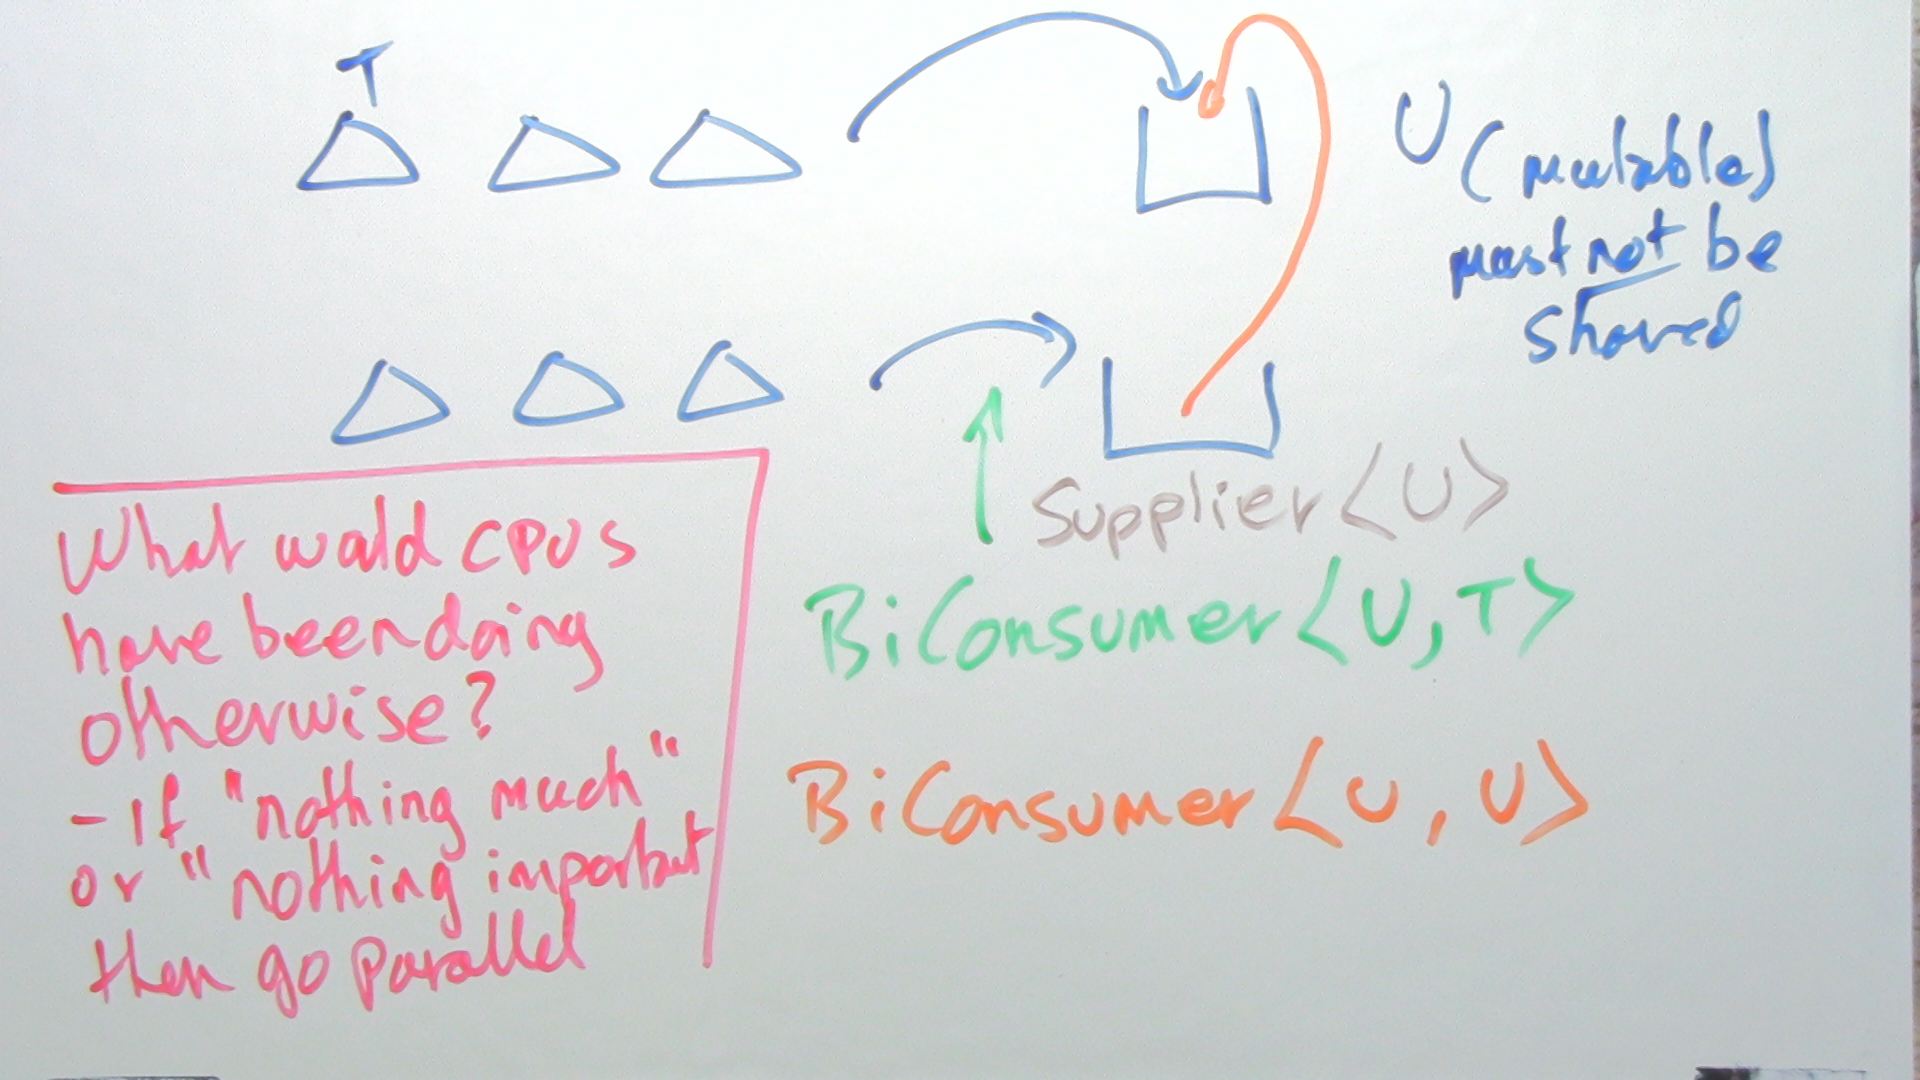 T
U
(mutable)
must not be
shared
Supplier<U>
BiConsumer<U,T>
BiConsumer<U,U>
What would CPUs
have been doing
otherwise?
- If "nothing much"
or "nothing important
then go parallel